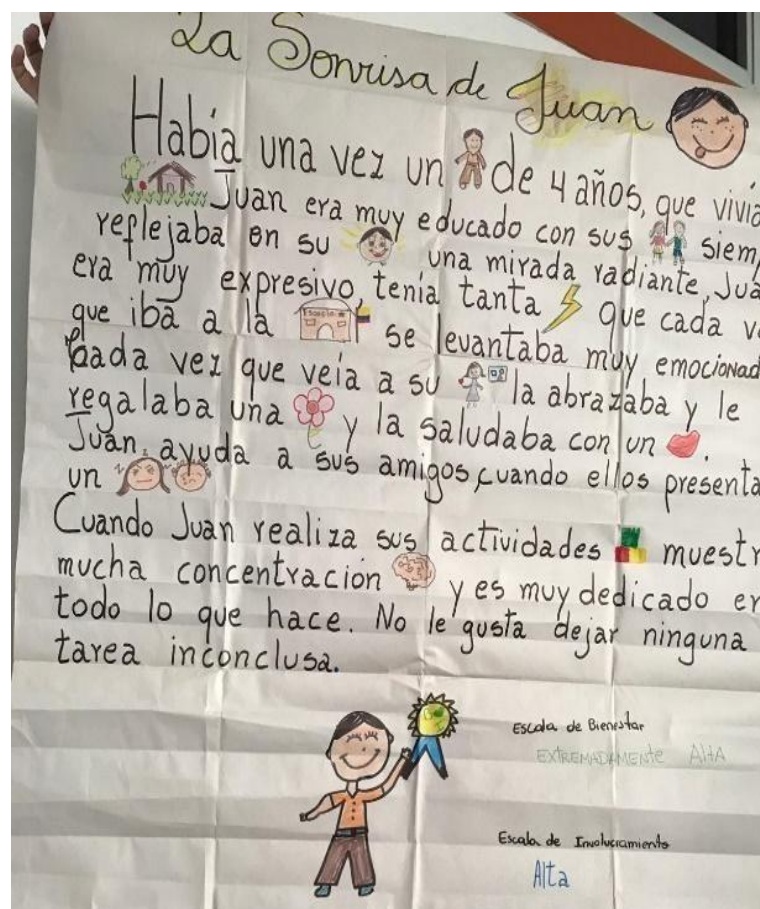 La Sonrisa de Juan
Había una vez un de 4 años, que vivía
Juan era muy educado con sus siem
reflejaba en su una mirada radiante, Jua
era muy expresivo, tenía tanta que cada v
que iba a la Escuela se levantaba muy emocionad
Cada vez que veía a su la abrazaba y le
regalaba una y la saludaba con un .
Juan, ayuda a sus amigos, cuando ellos presenta
un
Cuando Juan realiza sus actividades muestr
mucha concentración y es muy dedicado en
todo lo que hace. No le gusta dejar ninguna
tarea inconclusa.
Escala de Bienestar
EXTREMADAMENTE AltA
Escala de Involucramiento
Alta